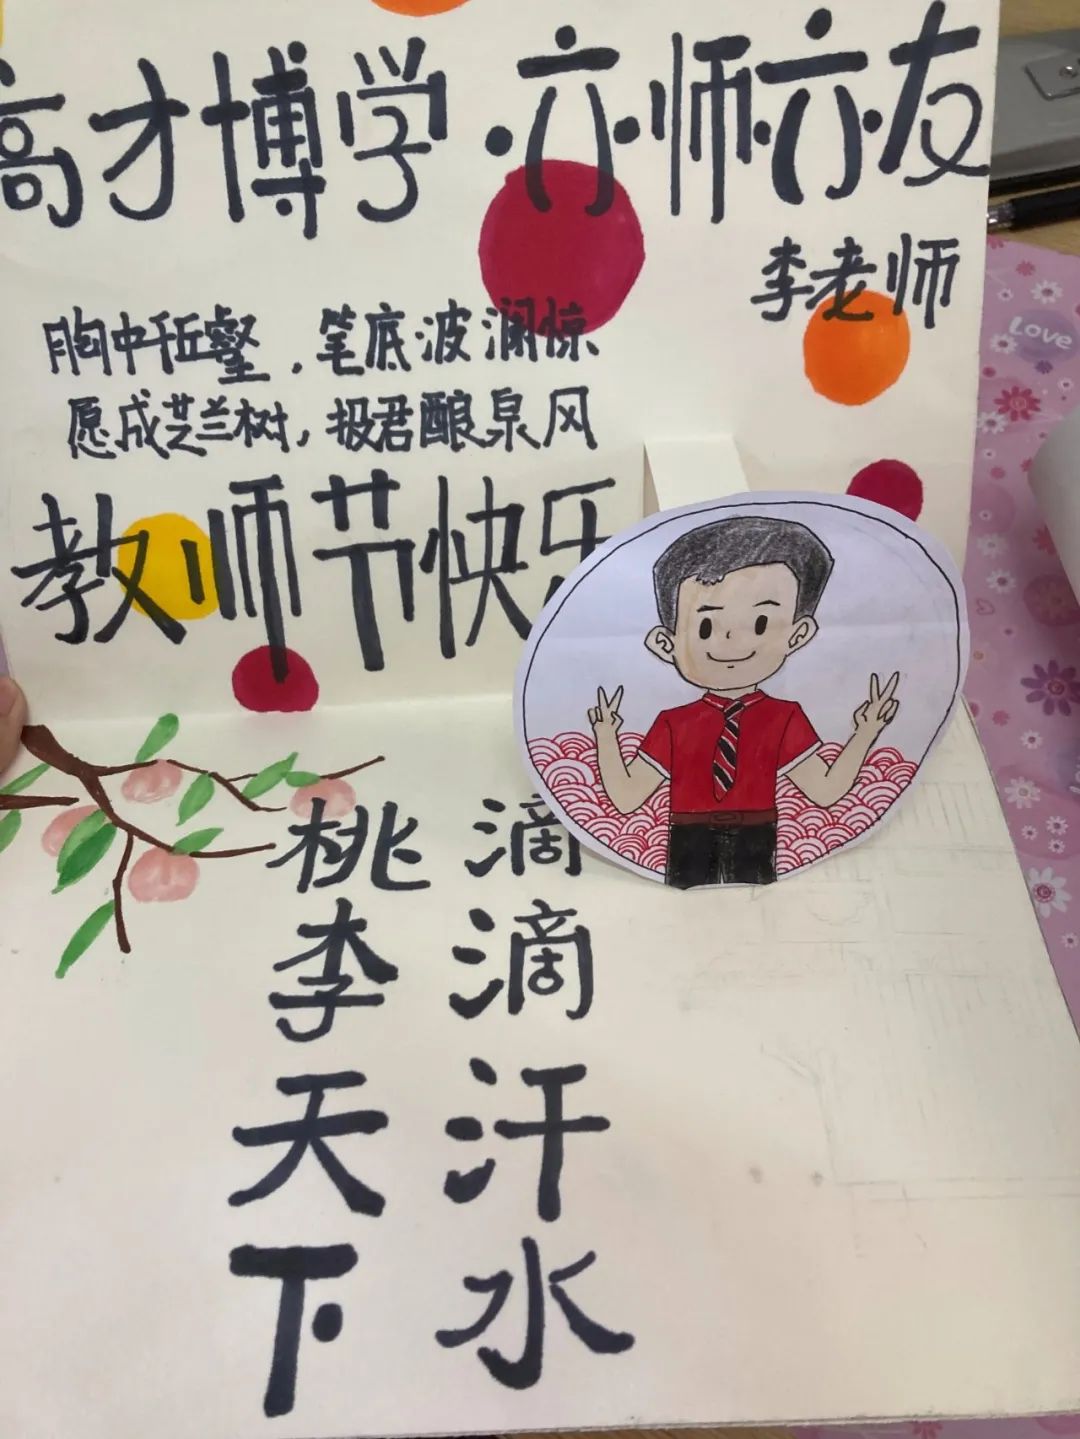 高才博学·亦师亦友
李老师
胸中丘壑，笔底波澜惊
愿成芝兰树，报君酿泉风
教师节快乐
滴滴汗水
桃李天下
Love